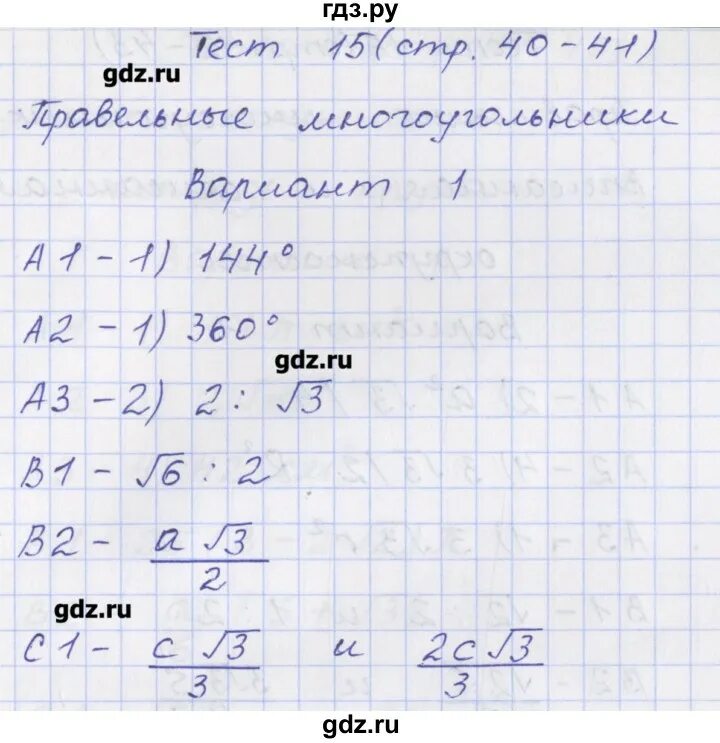 гдз.ру
Тест 15 (стр. 40-41)
gdz.ru
Правельные многоугольники
Вариант 1
А1 - 1) 144°
А2 - 1) 360°
gdz.ru
А3 - 2) 2 : √3
В1 - √6 : 2
В2 - a√3/2
gdz.ru
С1 - c√3/3 и 2c√3/3
gdz.ru